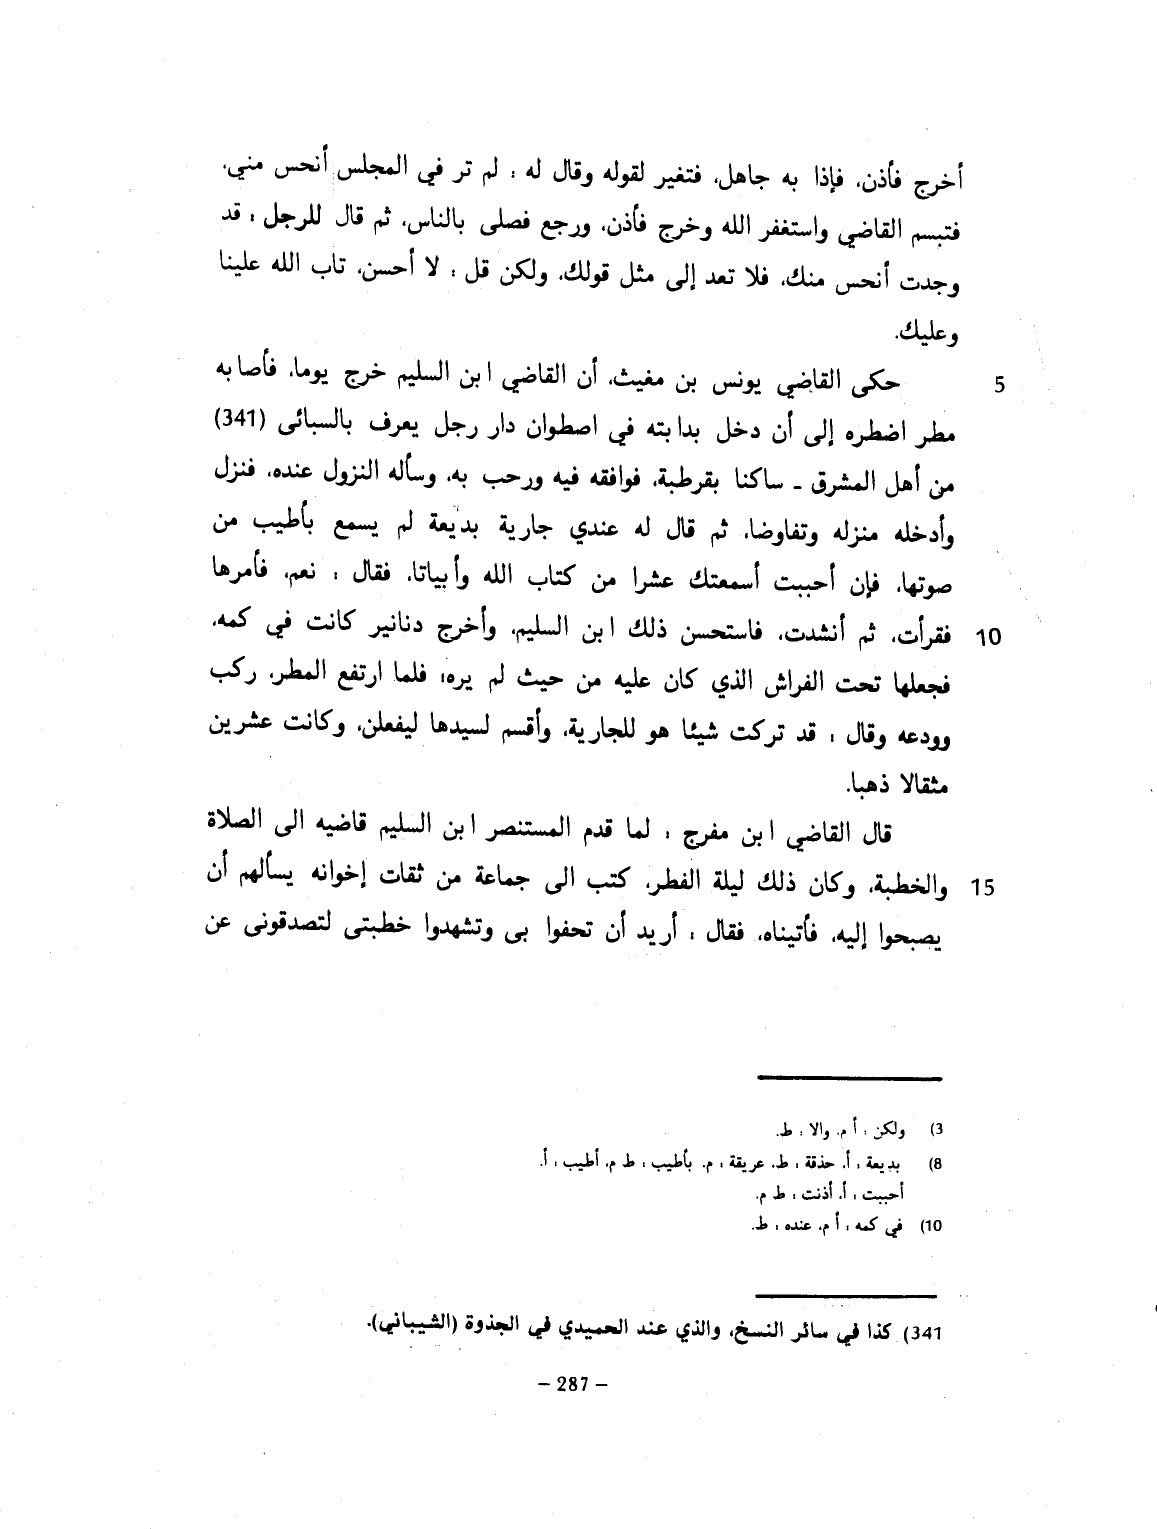 أخرج فأذن، فإذا به جاهل، فتغير لقوله وقال له : لم تر في المجلس أنحس مني،
فتبسم القاضي واستغفر الله وخرج فأذن، ورجع فصلى بالناس، ثم قال للرجل : قد
وجدت أنحس منك، فلا تعد إلى مثل قولك، ولكن قل : لا أحسن، تاب الله علينا
وعليك.
5 حكى القاضي يونس بن مغيث، أن القاضي ابن السليم خرج يوما، فأصابه
مطر اضطره إلى أن دخل بدابته في اصطوان دار رجل يعرف بالسبائى (341)
من أهل المشرق ـ ساكنا بقرطبة، فوافقه فيه ورحب به، وسأله النزول عنده، فنزل
وأدخله منزله وتفاوضا، ثم قال له عندي جارية بديعة لم يسمع بأطيب من
صوتها، فإن أحببت أسمعتك عشرا من كتاب الله وأبياتا، فقال : نعم، فأمرها
10 فقرأت، ثم أنشدت، فاستحسن ذلك ابن السليم، وأخرج دنانير كانت في كمه،
فجعلها تحت الفراش الذي كان عليه من حيث لم يره، فلما ارتفع المطر، ركب
وودعه وقال : قد تركت شيئا هو للجارية، وأقسم لسيدها ليفعلن، وكانت عشرين
مثقالا ذهبا.
قال القاضي ابن مفرج : لما قدم المستنصر ابن السليم قاضيه الى الصلاة
15 والخطبة، وكان ذلك ليلة الفطر، كتب الى جماعة من ثقات إخوانه يسألهم أن
يصبحوا إليه، فأتيناه، فقال : أريد أن تحفوا بى وتشهدوا خطبتى لتصدقونى عن
3) ولكن : أ م. والا : ط.
8) بديعة : أ. حذقة : ط. عريقة : م. بأطيب : ط م. أطيب : أ.
أحببت : أ. أذنت : ط م.
10) في كمه : أ م. عنده : ط.
341) كذا في سائر النسخ، والذي عند الحميدي في الجذوة (الشيباني).
– 287 –